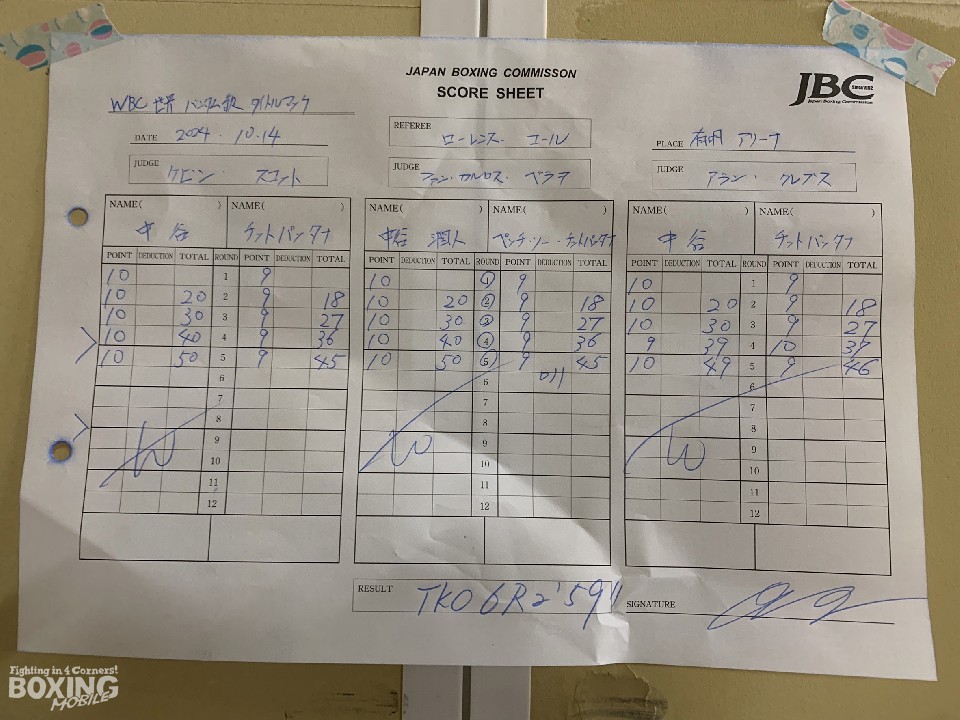 JAPAN BOXING COMMISSON
SCORE SHEET
JBC SINCE 1952
Japan Boxing Commission
WBC 世界 バンタム級 タイトルマッチ
DATE 2024.10.14
REFEREE ローレンス・コール
PLACE 有明アリーナ
JUDGE ケビン スコット
JUDGE ファン・カルロス・ペラヨ
JUDGE アラン・クレブス
NAME( ) NAME( ) NAME( ) NAME( ) NAME( ) NAME( )
中谷 チットパッタナ 中谷 潤人 ペッチ・ソー・チットパッタナ 中谷 チットパッタナ
POINT DEDUCTION TOTAL ROUND POINT DEDUCTION TOTAL POINT DEDUCTION TOTAL ROUND POINT DEDUCTION TOTAL POINT DEDUCTION TOTAL ROUND POINT DEDUCTION TOTAL
10 1 9 10 1 9 10 1 9
10 20 2 9 18 10 20 2 9 18 10 20 2 9 18
10 30 3 9 27 10 30 3 9 27 10 30 3 9 27
10 40 4 9 36 10 40 4 9 36 9 39 4 10 37
10 50 5 9 45 10 50 5 9 45 10 49 5 9 46
6 6 6
7 7 7
8 8 8
9 9 9
10 10 10
11 11 11
12 12 12
W W W
RESULT TKO 6R 2'59"
SIGNATURE
Fighting in 4 Corners!
BOXING
MOBILE